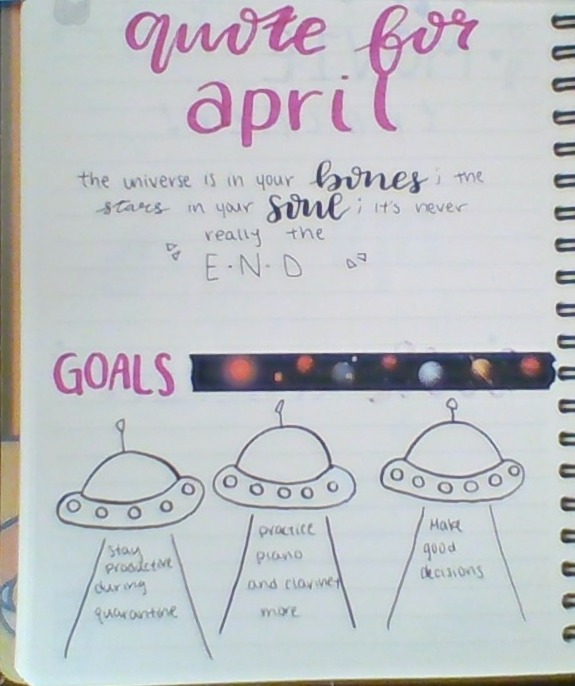 quote for
april
the universe is in your bones; the
stars in your soul; it's never
really the
E.N.D
GOALS
stay
productive
during
quarantine
practice
piano
and clarinet
more
Make
good
decisions